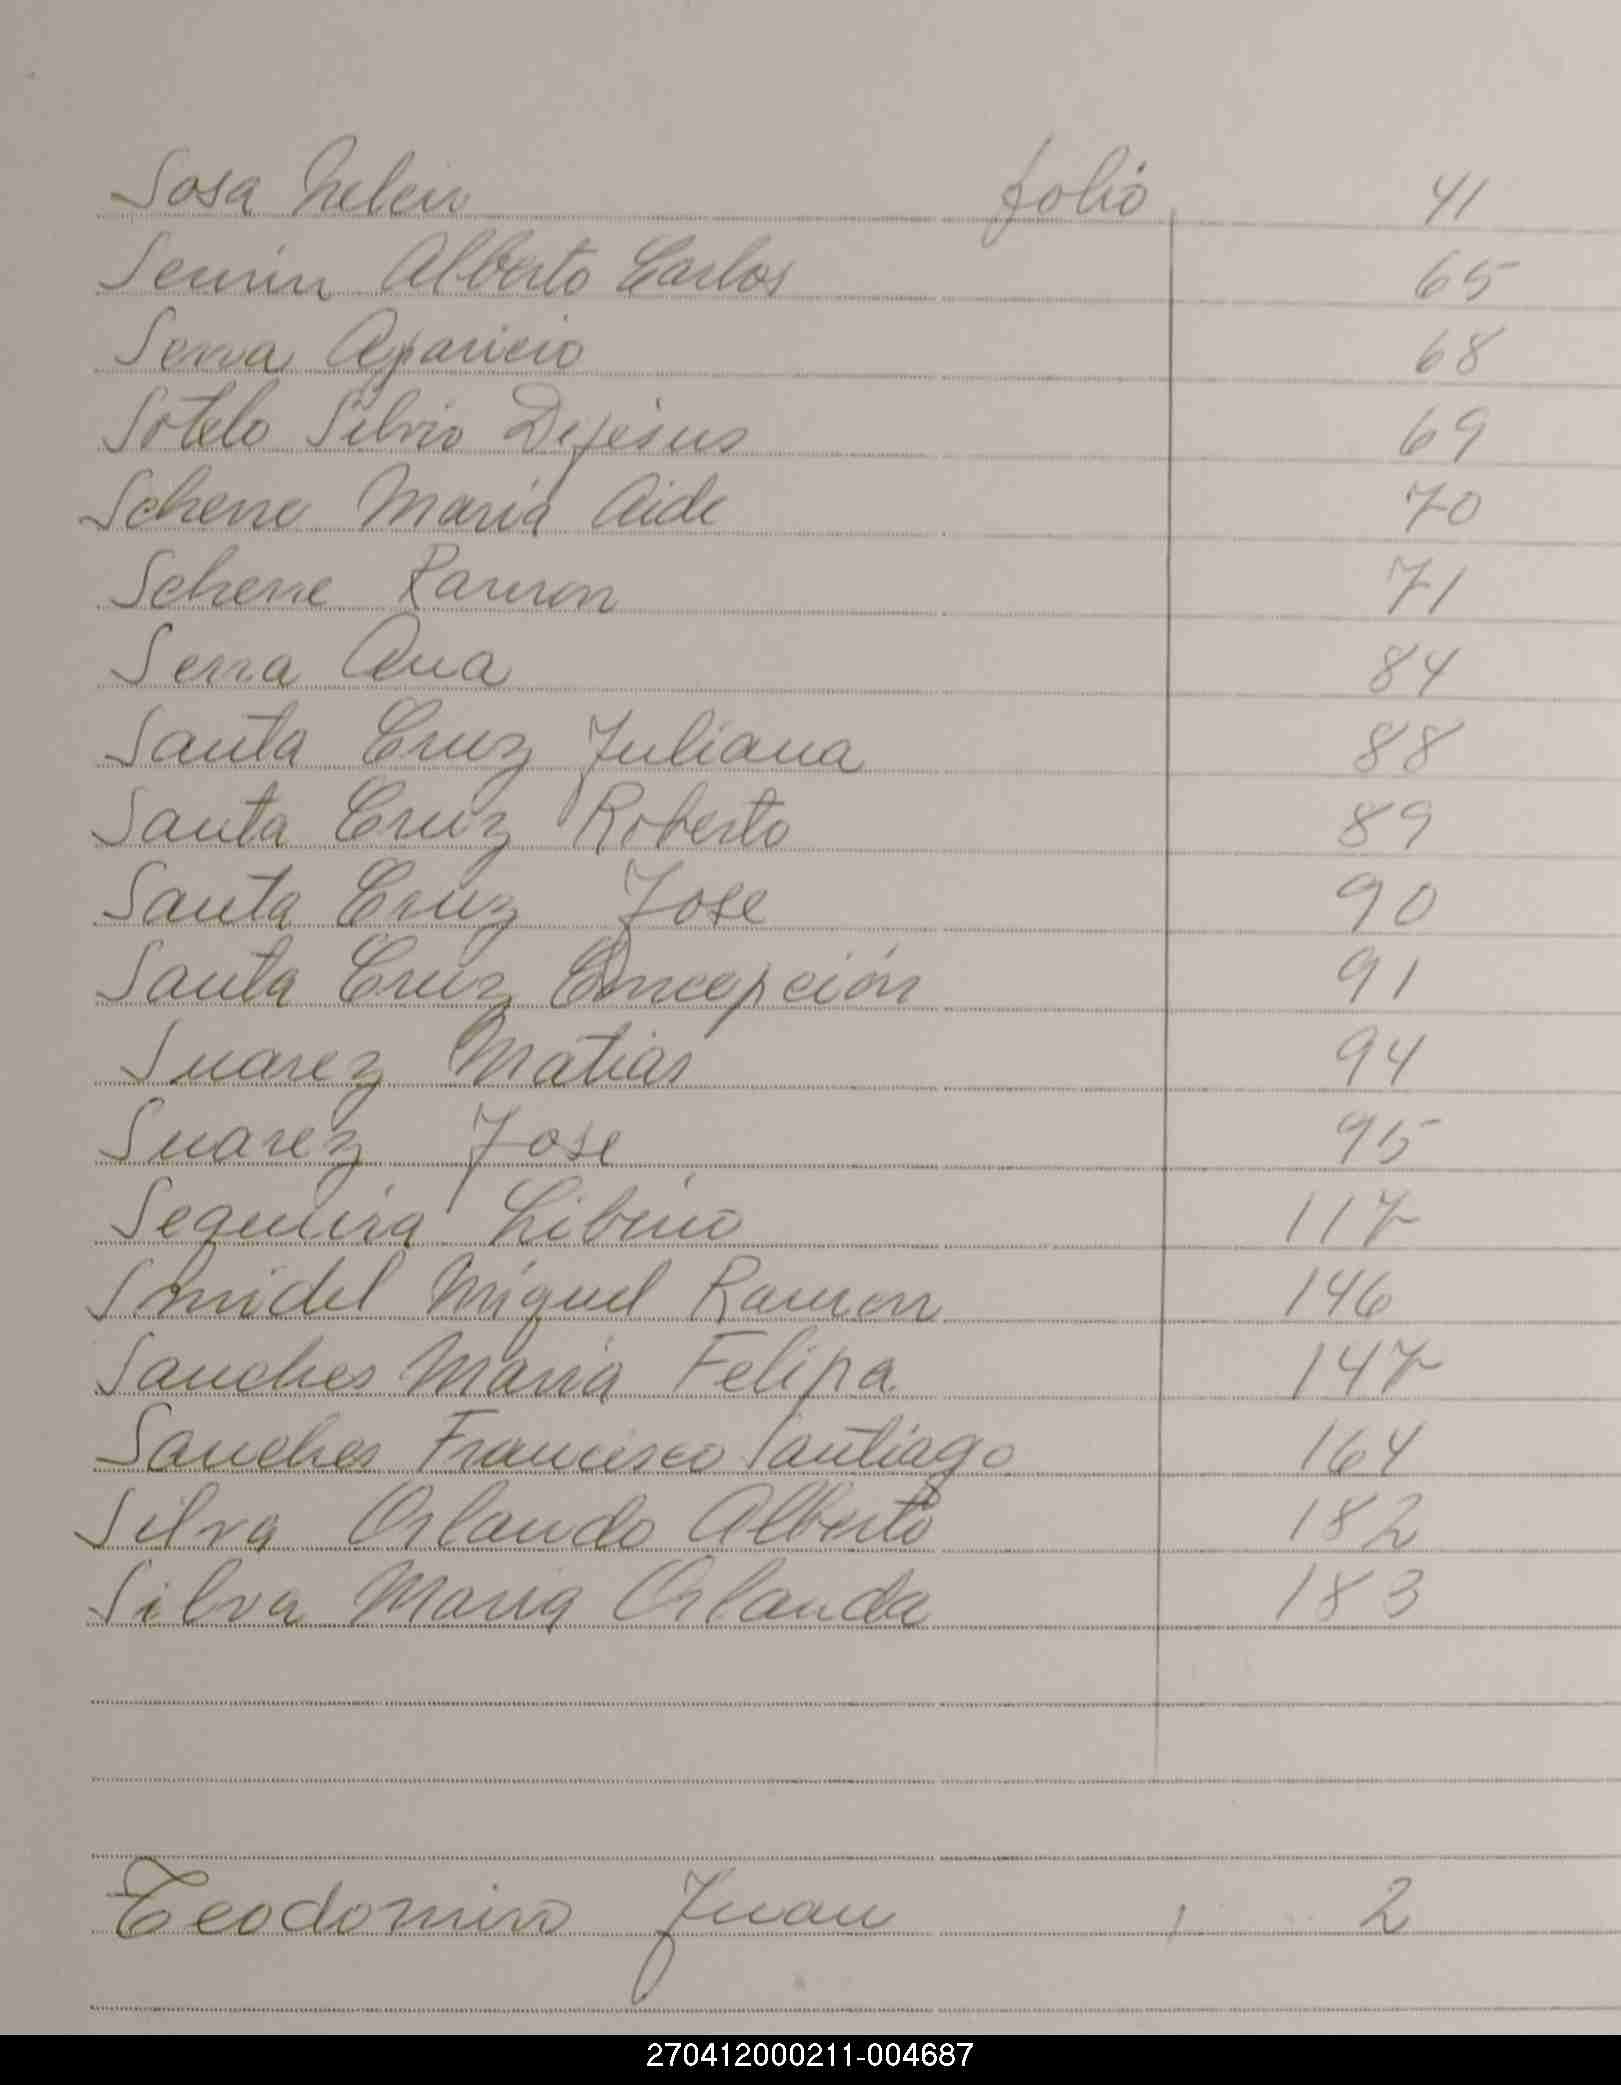 Sosa folio 41
Alberto Carlos 65
Serra Aparicio 68
Sotelo Silvio Dejesus 69
Schene Maria Aide 70
Schene Ramon 71
Serra Ana 84
Santa Cruz Juliana 88
Santa Cruz Roberto 89
Santa Cruz Jose 90
Santa Cruz Concepción 91
Suarez Matias 94
Suarez Jose 95
Sequeira Liberio 117
Smidel Miguel Ramon 146
Sanches Maria Felipa 147
Sanches Francisco Santiago 164
Silva Orlando Alberto 182
Silva Maria Orlanda 183
Teodomiro Juan 2
270412000211-004687